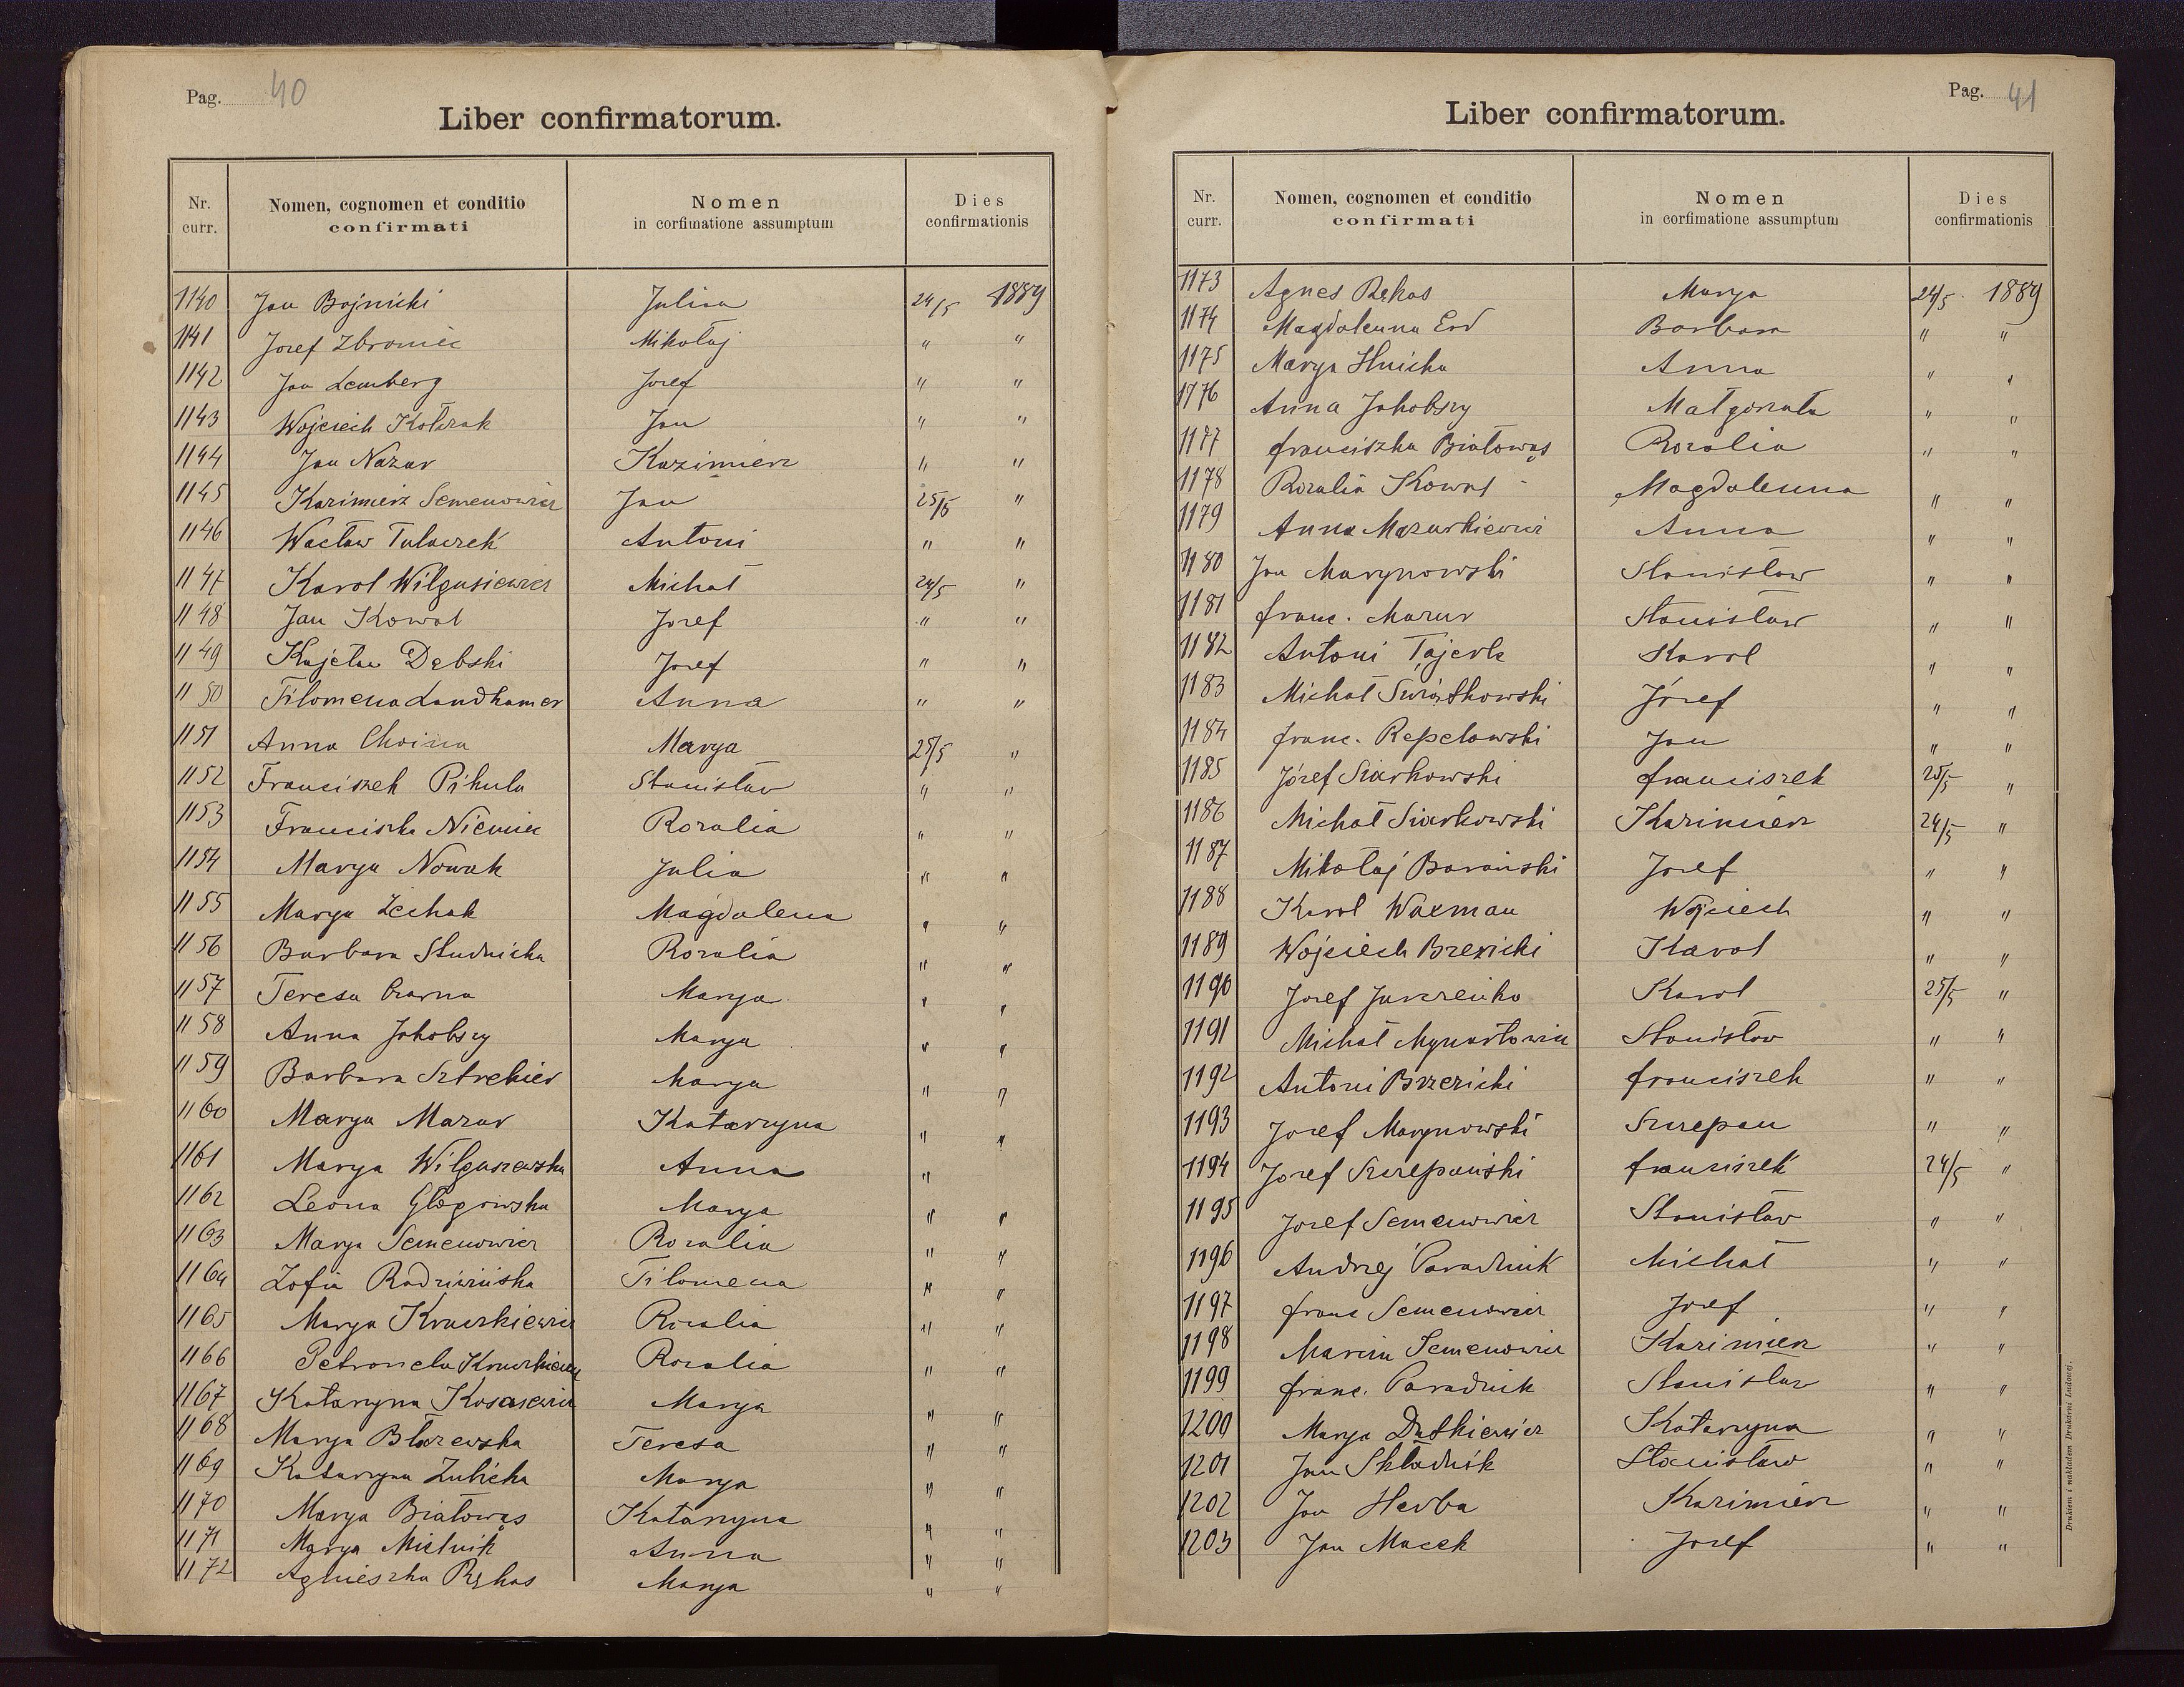 Pag. 40
Liber confirmatorum.
Nr. curr. Nomen, cognomen et conditio confirmati Nomen in corfimatione assumptum Dies confirmationis
1140 Jan Bojnicki Julian 24/5 1889
1141 Josef Zbroniec Mikołaj " "
1142 Jan Lemberg Josef " "
1143 Wojciech Kołczak Jan " "
1144 Jan Nazar Kazimierz " "
1145 Kazimierz Semenowicz Jan 25/5 "
1146 Wacław Tulaczek Antoni " "
1147 Karol Wilgusiewicz Michał 24/5 "
1148 Jan Kowal Jozef " "
1149 Kajetan Dębski Jozef " "
1150 Filomena Landhamer Anna " "
1151 Anna Choina Marya 25/5 "
1152 Franciszek Pikula Stanisław " "
1153 Franciszka Niemiec Rozalia " "
1154 Marya Nowak Julia " "
1155 Marya Zechak Magdalena " "
1156 Barbara Studnicka Rozalia " "
1157 Teresa Czarna Marya " "
1158 Anna Jakobszy Marya " "
1159 Barbara Sztrekier Marya " "
1160 Marya Mazur Katarzyna " "
1161 Marya Wilguszewska Anna "
1162 Leona Głogowska Marya " "
1163 Marya Semenowicz Rozalia " "
1164 Zofia Radziwińska Filomena " "
1165 Marya Krawzkiewicz Rozalia " "
1166 Petronela Rozalia " "
1167 Katarzyna Kosasewicz Marya " "
1168 Marya Błazewska Teresa " "
1169 Katarzyna Zubicka Marya " "
1170 Marya Białowąs Katarzyna " "
1171 Marya Mielnik Anna " "
1172 Agnieszka Rękas Marya " "
Pag. 41
Liber confirmatorum.
Nr. curr. Nomen, cognomen et conditio confirmati Nomen in corfimatione assumptum Dies confirmationis
1173 Agnes Rękas Marya 24/5 1889
1174 Magdalenna Erd Barbara " "
1175 Marya Hnicka Anna " "
1176 Anna Jakobszy Małgorzata " "
1177 franciszka Białowąs Rozalia " "
1178 Rozalia Kowal Magdalenna " "
1179 Anna Mazurkiewicz Anna " "
1180 Jan Marynowski Stanisław " "
1181 franc. Mazur Stanisław " "
1182 Antoni Tajerle Karol " "
1183 Michał Swiątkowski Józef " "
1184 franc. Repelowski Jan " "
1185 Józef Siarkowski franciszek 25/5 "
1186 Michał Siarkowski Kazimierz 24/5 "
1187 Mikołaj Barański Jozef " "
1188 Karol Waxman Wojciech " "
1189 Wojciech Brezicki Karol " "
1190 Jozef Jurczenko Karol 25/5 "
1191 Michał Mynartowicz Stanisław " "
1192 Antoni Brzezicki franciszek " "
1193 Jozef Marynowski Szczepan " "
1194 Jozef Szczepański franciszek 24/5 "
1195 Jozef Semenowicz Stanisław " "
1196 Andrzej Paradnik Michał " "
1197 franc Semenowicz Jozef " "
1198 Marcin Semenowicz Kazimierz " "
1199 franc. Paradnik Stanisław " "
1200 Marya Dutkiewicz Katarzyna " "
1201 Jan Składnik Stanisław " "
1202 Jan Herba Kazimierz " "
1203 Jan Macek Jozef " "
Drukiem i nakładem Drukarni Ludowej.